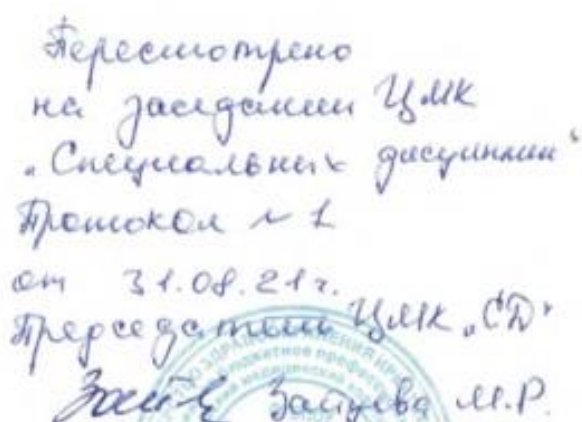 Пересмотрено
на заседании ЦМК
„Специальных дисциплин“
Протокол №1
от 31.08.21г.
Председатель ЦМК „СД“
Зайцева М.Р.